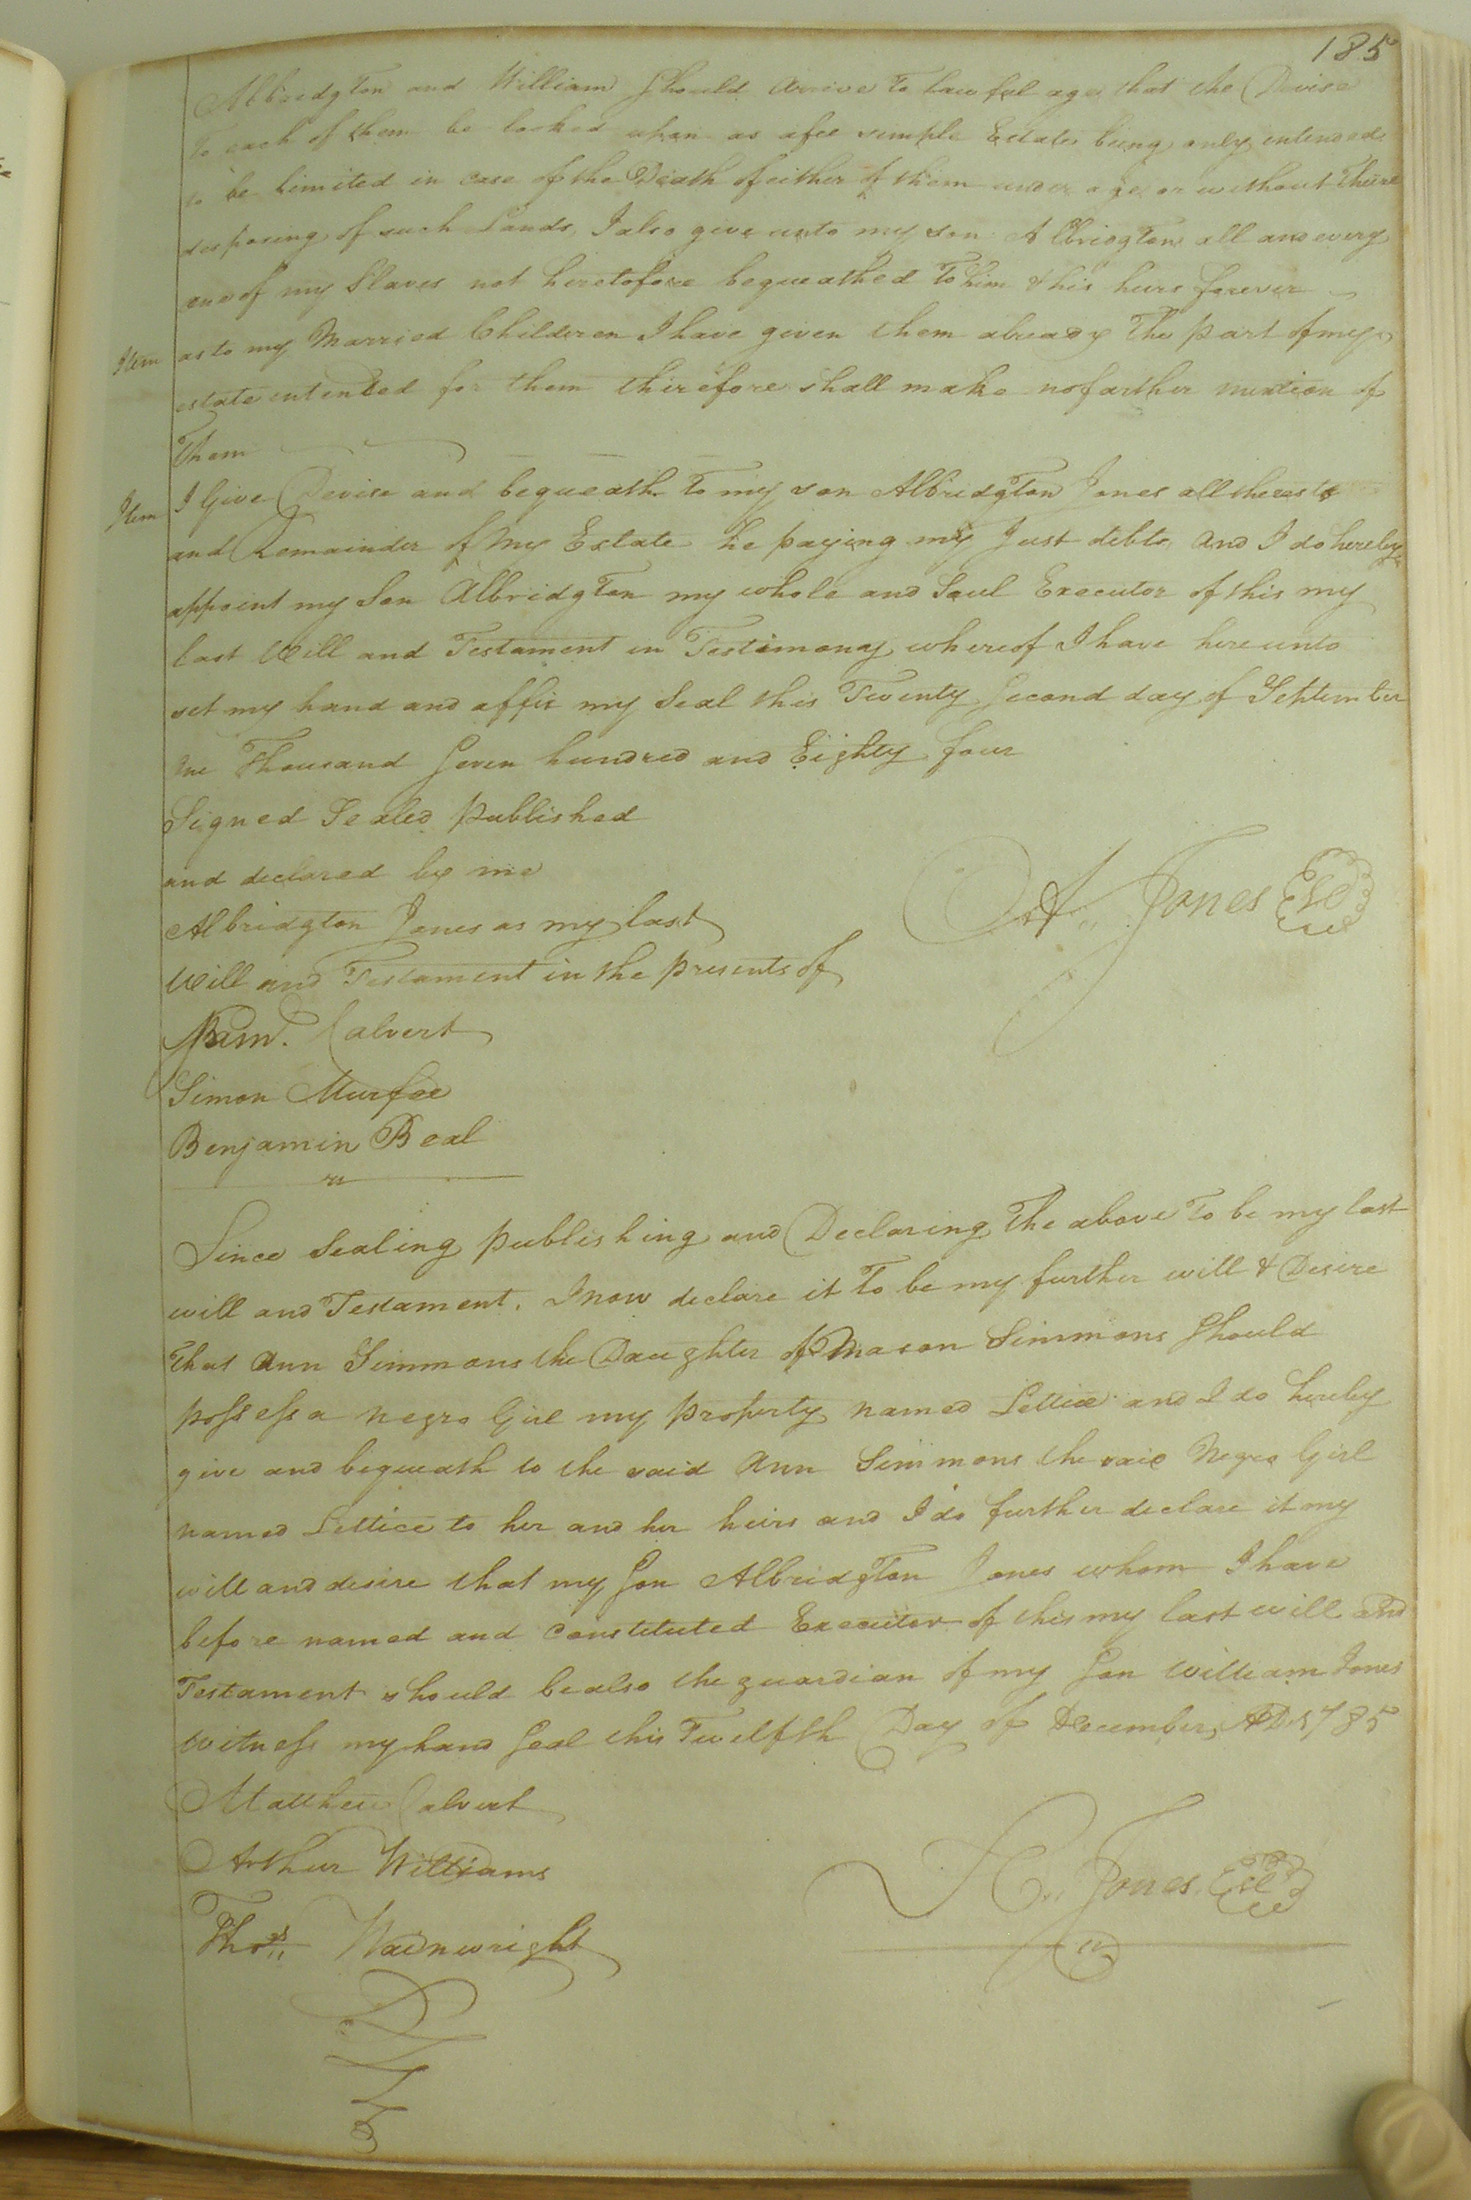 185
Albridgton and William Should arrive To lawful age that the Devise
To each of them be looked upon as afee simple Estate being only intended
to be limited in case of the Death of either of them under age or without Their
disposing of such Lands, I also give unto my son Albridgton all and every
one of my Slaves not heretofore bequeathed To him & his heirs forever
Item as to my Married Childeren I have given them already The part of my
estate intended for them therefore shall make no farther mention of
Them
Item I Give Devise and bequeath To my son Albridgton Jones all the rest
and Remainder of My Estate he paying my Just debts, and I do hereby
appoint my Son Albridgton my whole and Soul Executor of this my
last Will and Testament in Testimony whereof I have hereunto
set my hand and affix my Seal this Twenty Second day of September
one Thousand Seven hundred and Eighty four
Signed Sealed published
and declared by me
Albridgton Jones as my last
Will and Testament in the presents of
A,, Jones
Calvert
Simon Murfee
Benjamin Beal
Since Sealing publishing and Declaring The above To be my last
will and Testament. I now declare it To be my further will & Desire
That Ann Simmons the Daughter of Mason Simmons Should
possess a Negro Girl my property named Lettice and I do hereby
give and bequeath to the said Ann Simmons the said Negro Girl
named Lettice to her and her heirs and I do further declare it my
will and desire that my Son Albridgton Jones whom I have
before named and constituted Executor of this my last will and
Testament should be also the guardian of my Son William Jones
Witness my hand Seal this Twelfth Day of December AD 1785
Matthew Calvert
Arthur Williams
Thos,, Wainwright
Jones